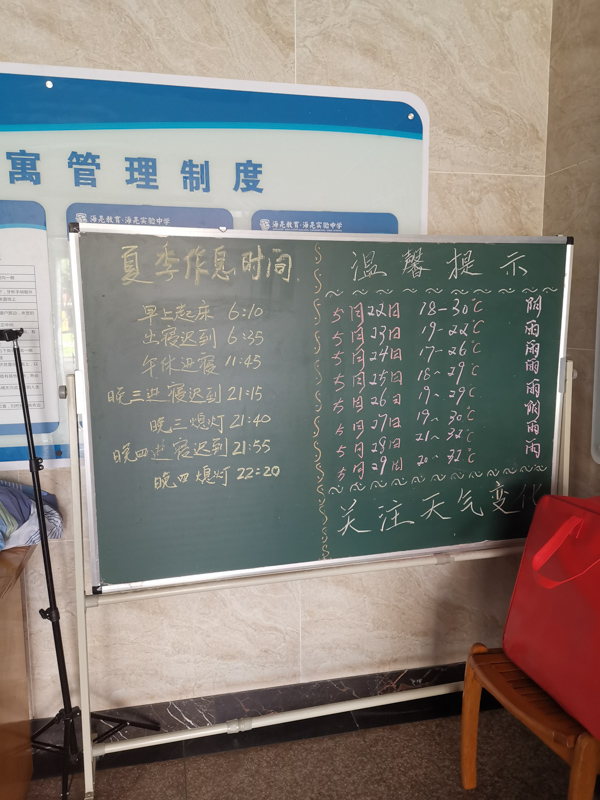 寓管理制度
海亮教育·海亮实验中学
海亮教育·海亮实验中学
夏季作息时间
早上起床 6:10
出寝迟到 6:35
午休进寝 11:45
晚三进寝迟到 21:15
晚三熄灯 21:40
晚四进寝迟到 21:55
晚四熄灯 22:20
温馨提示
5月22日 18-30℃ 阴
5月23日 19-22℃ 雨
5月24日 17-26℃ 雨
5月25日 18-29℃ 雨
5月26日 19-29℃ 雨
5月27日 19-30℃ 阴
5月28日 21-32℃ 雨
5月29日 20-32℃ 雨
关注天气变化